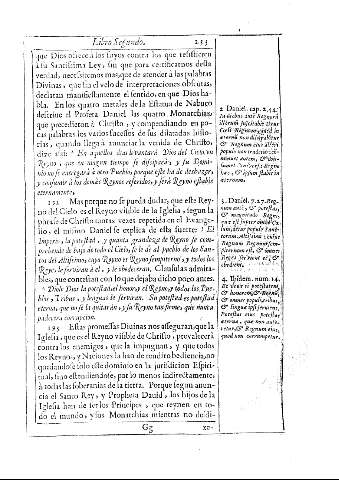 Libro Segundo. 233
que Dios ofrece a los suyos contra los que resistieren
su Santissima Ley, sin que para certificarnos desta
verdad, necessitemos mas, que de atender à las palabras
Divinas, que hà el velo de interpretaciones obscuras,
declaran manifiestamente el sentido, en que Dios ha-
bla. En los quatro metales de la Estatua de Nabuco
descifrò el Profeta Daniel, las quatro Monarchias
que precedieron à Christo, y compendiando en po-
cas palabras los varios sucessos de sus dilatadas Histo-
rias, quando llega à anunciar la venida de Christo,
dize assi: En aquellos dias levantarà Dios del Cielo un
Reyno, que en ningun tiempo se dissiparà, y su Domi-
nio no se entregarà à otro Pueblo, porque este ha de deshazer,
y consumir à los demàs Reynos referidos, y serà Reyno estable
eternamente.
192 Mas porque no se pueda dudar, que este Rey-
no del Cielo es el Reyno visible de la Iglesia, segun la
phrase de Christo tantas vezes repetida en el Evange-
lio, el mismo Daniel se explica de esta suerte: El
Imperio, la potestad, y quanta grandeza de Reyno se com-
prehende de baxo de todo el Cielo, se le dè al pueblo de los San-
tos del Altissimo, cuyo Reyno es Reyno sempiterno, y todos los
Reyes le serviran à el, y le obedeceran. Clausulas admira-
bles, que contestan con lo que dexaba dicho poco antes.
Diole Dios la potestad, el honor, y el Reyno: y todos los Pue-
blos, Tribus, y lenguas le serviran. Su potestad es potestad
eterna, que no se le quitarà, y su Reyno tan firme, que nunca
padecerà corrupcion.
193 Estas promessas Divinas nos asseguran, que la
Iglesia, que es el Reyno visible de Christo, prevalecerà
contra los enemigos, que la impugnan, y que todos
los Reynos, y Naciones la han de rendir obediencia, no
quedandose solo este dominio en la jurisdicion Espiri-
tual, sino estendiendose, por lo menos indirectamente,
à todas las soberanias de la tierra. Porque segun anun-
cia el Santo Rey, y Propheta David, los hijos de la
Iglesia han de ser los Principes, que reynen en to-
do el mundo, y sus Monarchias mientras no decli-
Gg
2 Daniel. cap. 2.44.
In diebus autem Regnorum
illorum suscitabit Deus
Cœli Regnum, quod in
æternum non dissipabitur
3. Daniel. 7.27. Reg-
num autem, & potestas,
& magnitudo Regni,
4. Ibidem. num. 14.
Et dedit ei potestatem,
& honorem, & Regnum,
& omnes populi, tribus,
& linguæ ipsi servient,
Potestas eius potestas
æterna, quæ non aufe-
retur, & Regnum eius,
quod non corrumpetur.